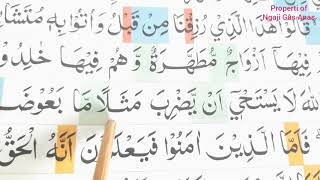 Properti of
Ngaji Gus Anas
قَالُوا هٰذَا الَّذِيْ رُزِقْنَا مِنْ قَبْلُ وَأُتُوْا بِهٖ مُتَشَا
فِيْهَآ اَزْوَاجٌ مُّطَهَّرَةٌ وَّهُمْ فِيْهَا خٰلِدُوْ
اللّٰهَ لَا يَسْتَحْيٖٓ اَنْ يَّضْرِبَ مَثَلًا مَّا بَعُوْضَ
فَاَمَّا الَّذِيْنَ اٰمَنُوْا فَيَعْلَمُوْنَ اَنَّهُ الْحَقُّ